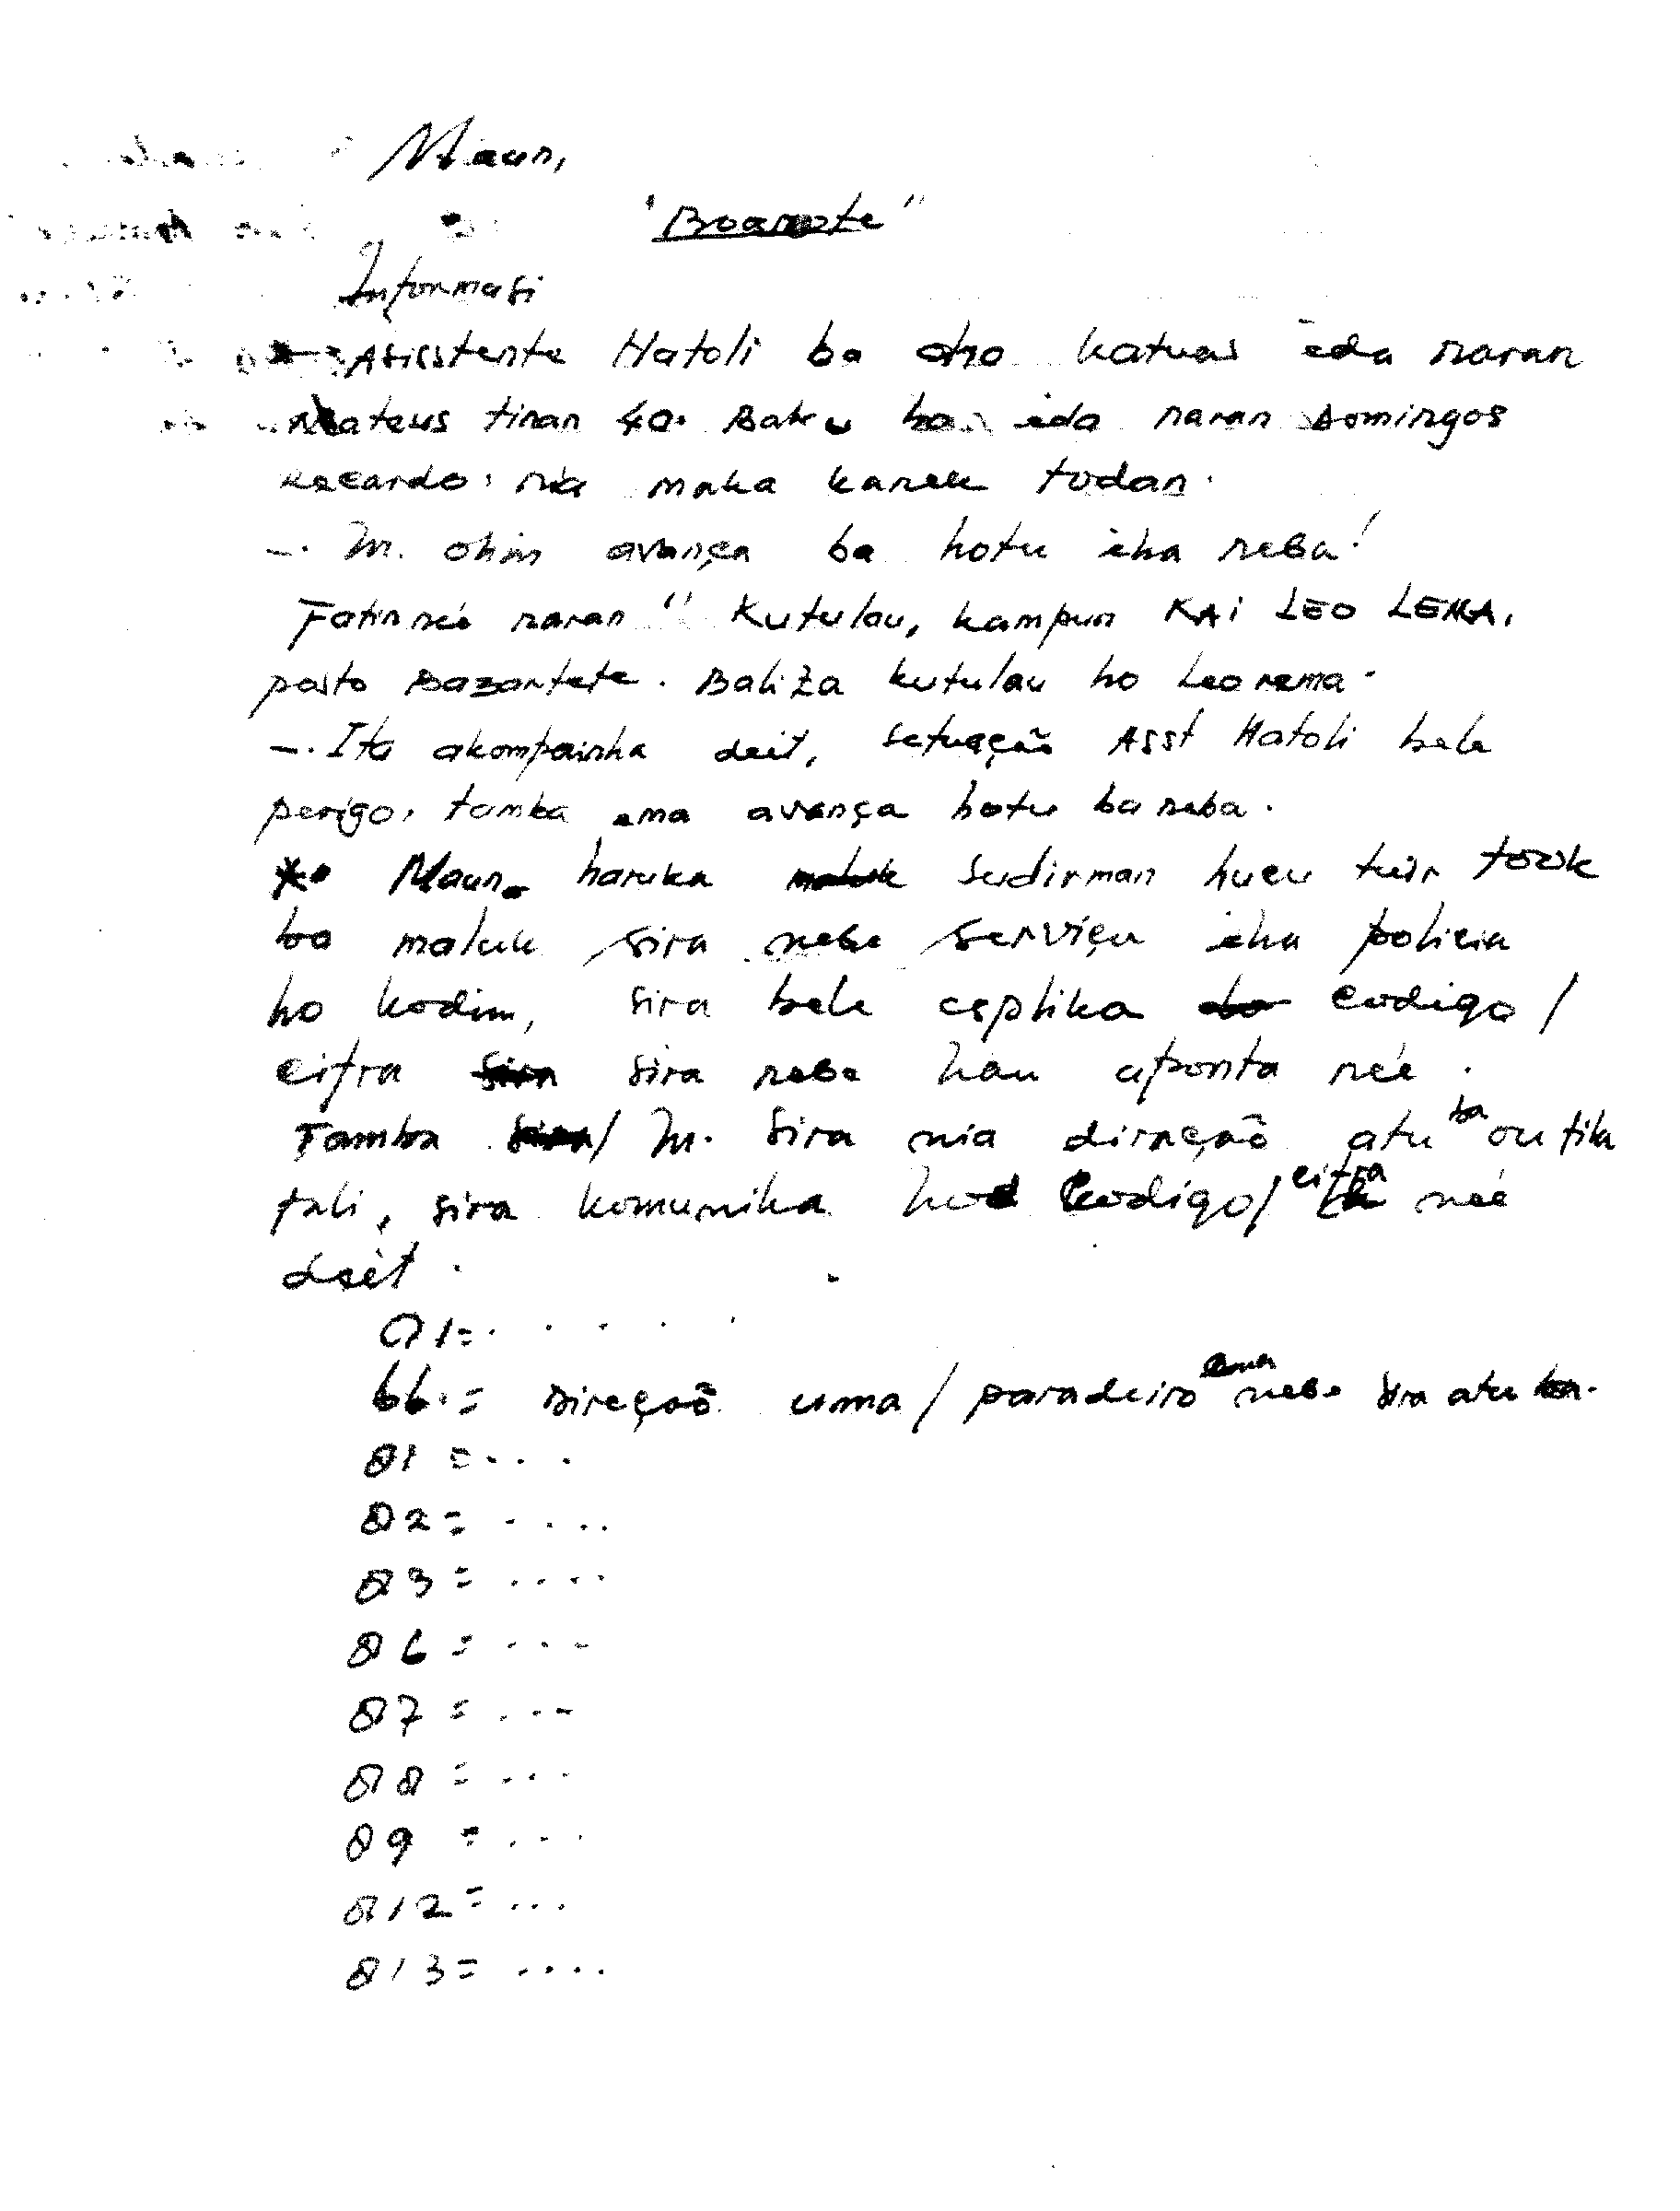 Maun,
"Boanote"
Informasi
- Asisstente Hatoli ba oho katuas ida naran
Mateus tinan 40. Baku ho ida naran Domingos
Recardo. nia maka kanek todan.
-. M. ohin avança ba hotu iha neba!
Fatin neé naran " Kutulau, kampun KAI LEO LEMA,
posto Bazartete. Baliza kutulau ho Leorema.
-. Ita akompainha deit, setuação Asst Hatoli bele
perigo, tamba ema avança hotu ba neba.
* Maun. haruka Sudirman hucu tuir took
ba maluk sira nebe serviçu iha policia
ho kodim, sira bele csplika codigo/
cifra sira nebe hau aponta neé.
Tamba / M. sira nia direção atu ba ou fila
fali, sira komunika ho codigo/ cifra neé
deit.
01=.....
66.= Direçaõ uma / paradeiro ema nebe sira atu ba.
81 =....
82 = .....
83 = ....
86 = ...
87 = ...
88 = ....
89 = ....
812 = ...
813 = ....